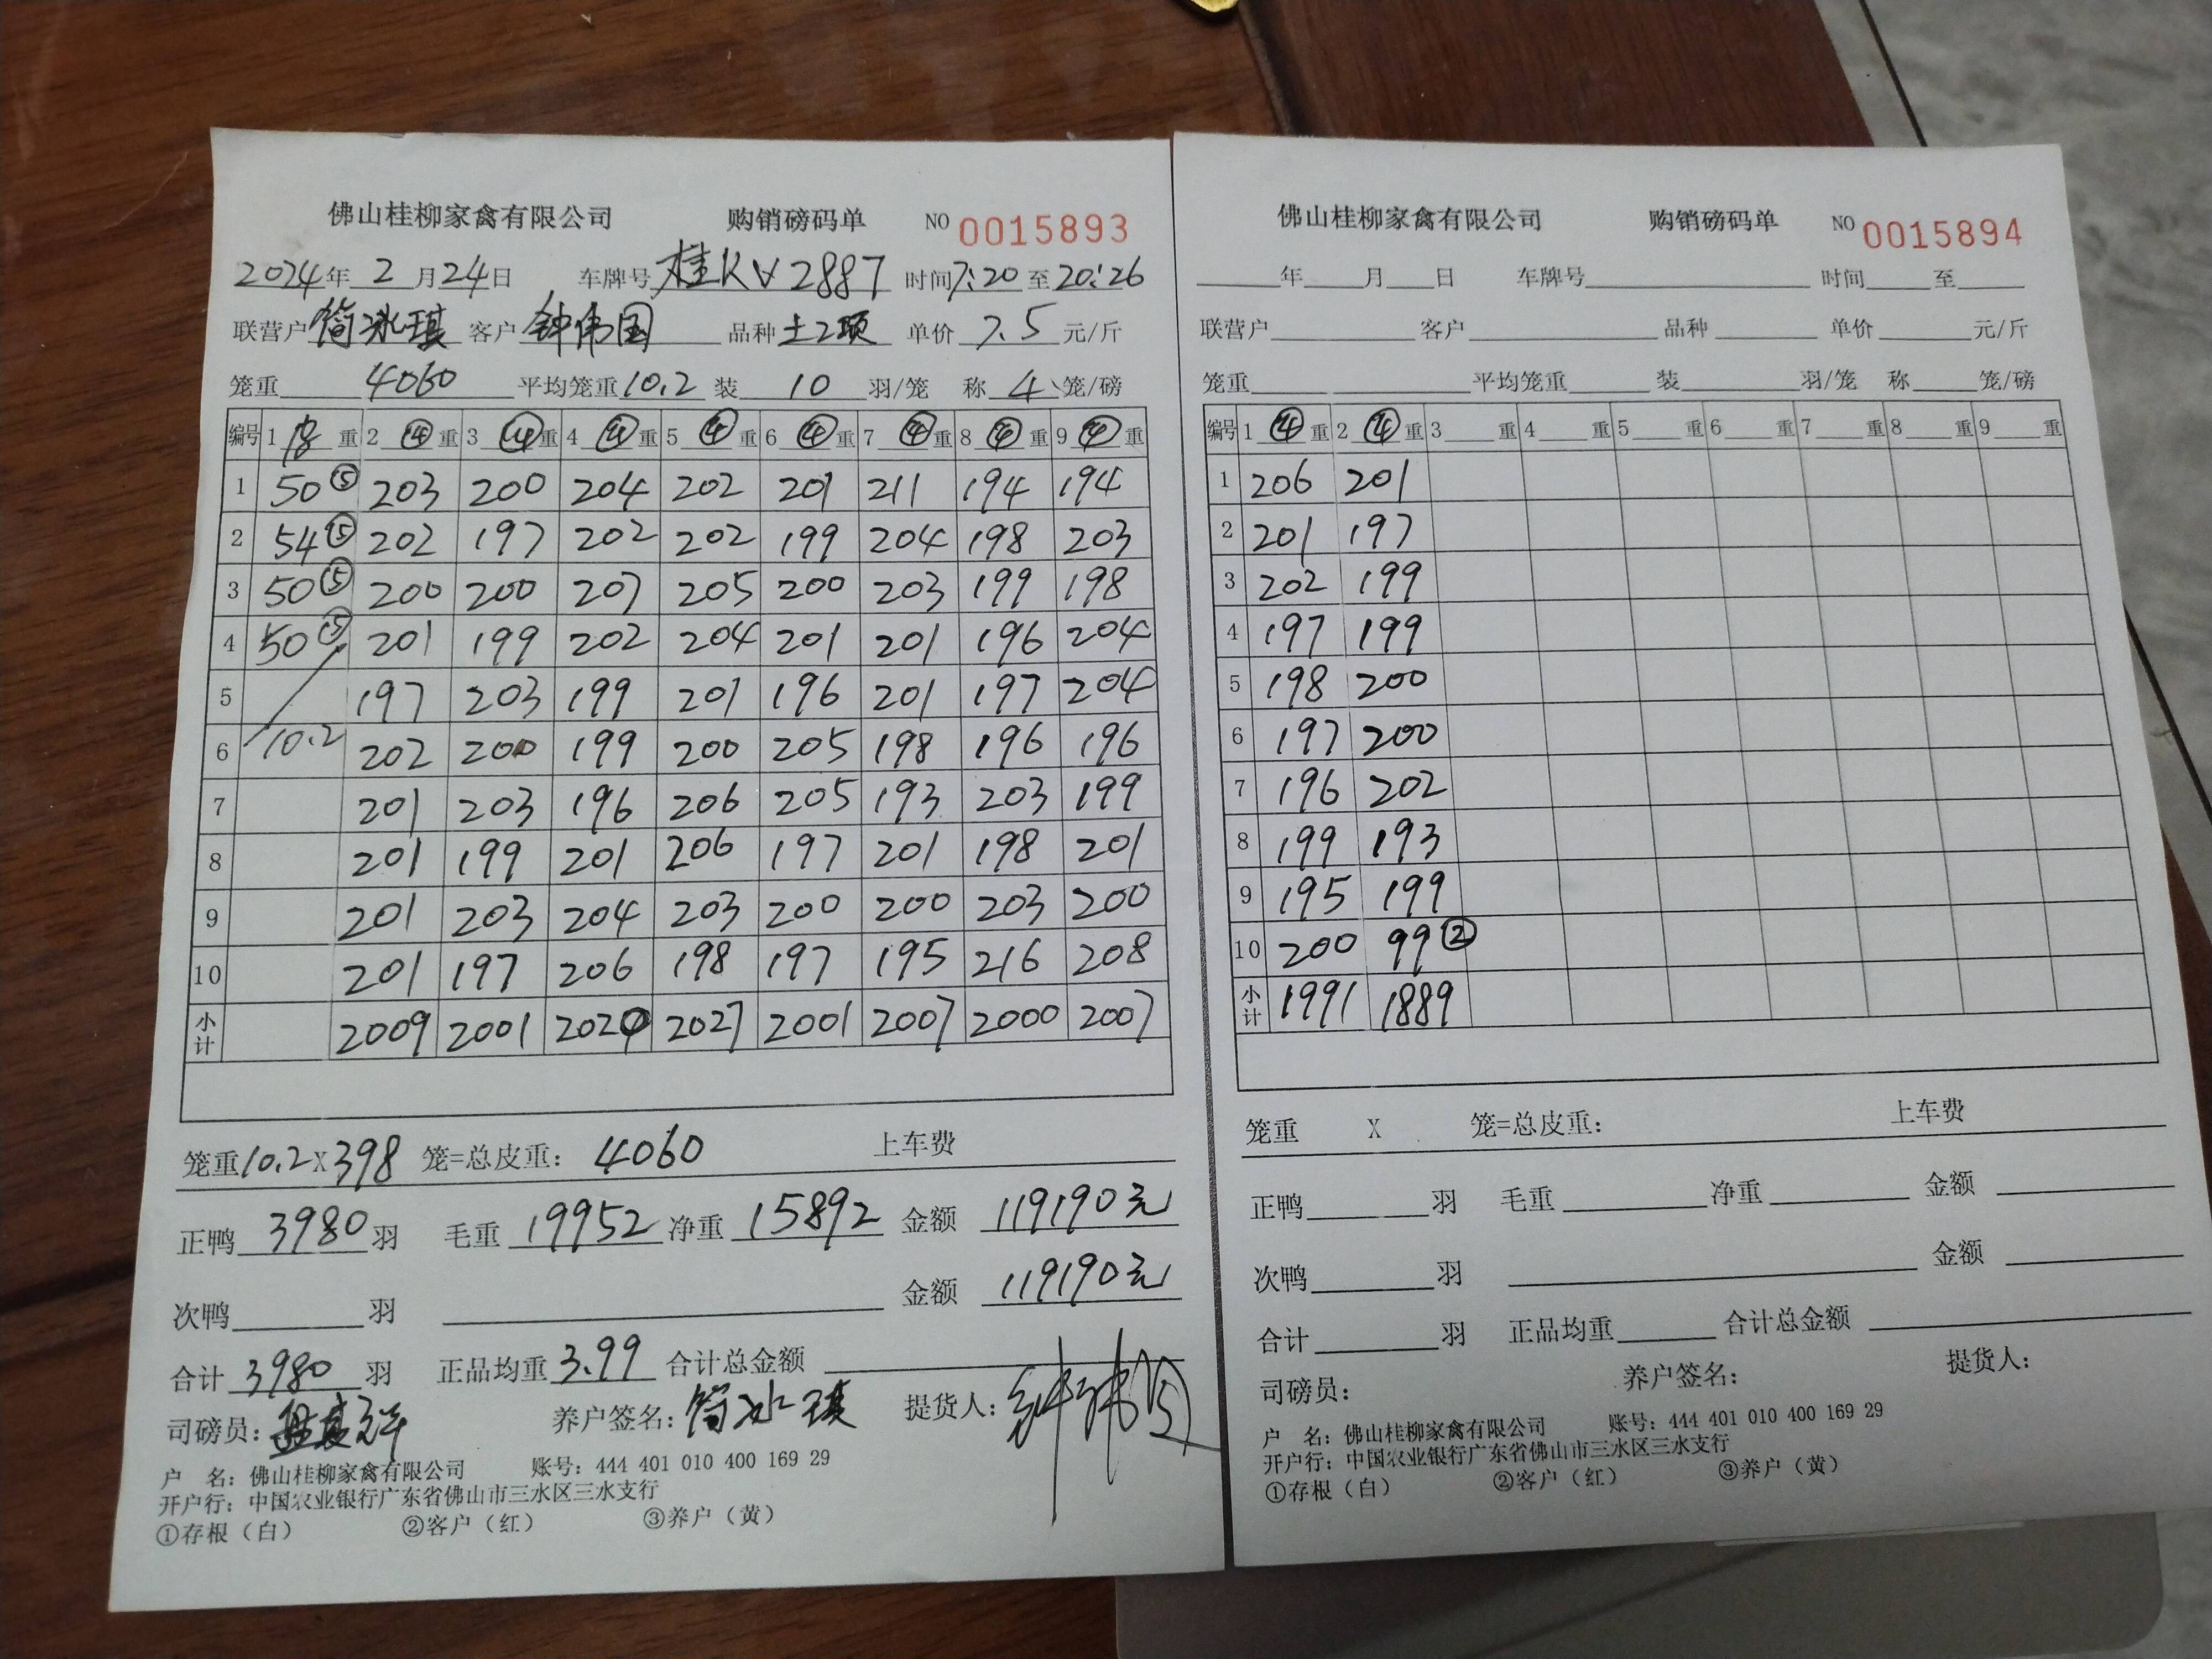 佛山桂柳家禽有限公司 购销磅码单 NO 0015893
2024年 2 月24日 车牌号 桂KV2887 时间7:20 至 20:26
联营户 简冰琪 客户 钟伟国 品种 土2项 单价 7.5 元/斤
笼重 4060 平均笼重 10.2 装 10 羽/笼 称 4 笼/磅
编号 1 皮 重 2 ④ 重 3 ④ 重 4 ④ 重 5 ④ 重 6 ④ 重 7 ④ 重 8 ④ 重 9 ④ 重
1 50⑤ 203 200 204 202 201 211 194 194
2 54⑤ 202 197 202 202 199 204 198 203
3 50⑤ 200 200 207 205 200 203 199 198
4 50⑤ 201 199 202 204 201 201 196 204
5 197 203 199 201 196 201 197 204
6 10.2 202 200 199 200 205 198 196 196
7 201 203 196 206 205 193 203 199
8 201 199 201 206 197 201 198 201
9 201 203 204 203 200 200 203 200
10 201 197 206 198 197 195 216 208
小计 2009 2001 2020 2027 2001 2007 2000 2007
笼重10.2X398 笼=总皮重: 4060 上车费
正鸭 3980 羽 毛重 19952 净重 15892 金额 119190元
次鸭 羽 金额 119190元
合计 3980 羽 正品均重 3.99 合计总金额
司磅员: 养户签名: 简冰琪 提货人: 钟伟国
户 名: 佛山桂柳家禽有限公司 账号: 444 401 010 400 169 29
开户行: 中国农业银行广东省佛山市三水区三水支行
①存根(白) ②客户(红) ③养户(黄)
佛山桂柳家禽有限公司 购销磅码单 NO 0015894
年 月 日 车牌号 时间 至
联营户 客户 品种 单价 元/斤
笼重 平均笼重 装 羽/笼 称 笼/磅
编号 1 ④ 重 2 ④ 重 3 重 4 重 5 重 6 重 7 重 8 重 9 重
1 206 201
2 201 197
3 202 199
4 197 199
5 198 200
6 197 200
7 196 202
8 199 193
9 195 199
10 200 99②
小计 1991 1889
笼重 X 笼=总皮重: 上车费
正鸭 羽 毛重 净重 金额
次鸭 羽 金额
合计 羽 正品均重 合计总金额
司磅员: 养户签名: 提货人:
户 名: 佛山桂柳家禽有限公司 账号: 444 401 010 400 169 29
开户行: 中国农业银行广东省佛山市三水区三水支行
①存根(白) ②客户(红) ③养户(黄)